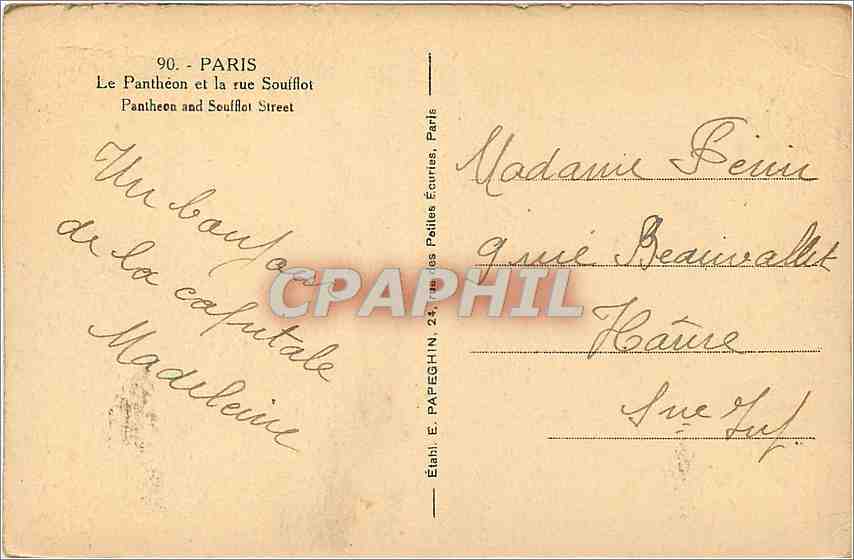 90. - PARIS
Le Panthéon et la rue Soufflot
Pantheon and Soufflot Street
Un bonjour
de la capitale
Madeleine
Etabl. E. PAPEGHIN, 24, rue des Petites Écuries, Paris
Madame
9 rue Beauvallet
Havre
Sne Inf
CPAPHIL